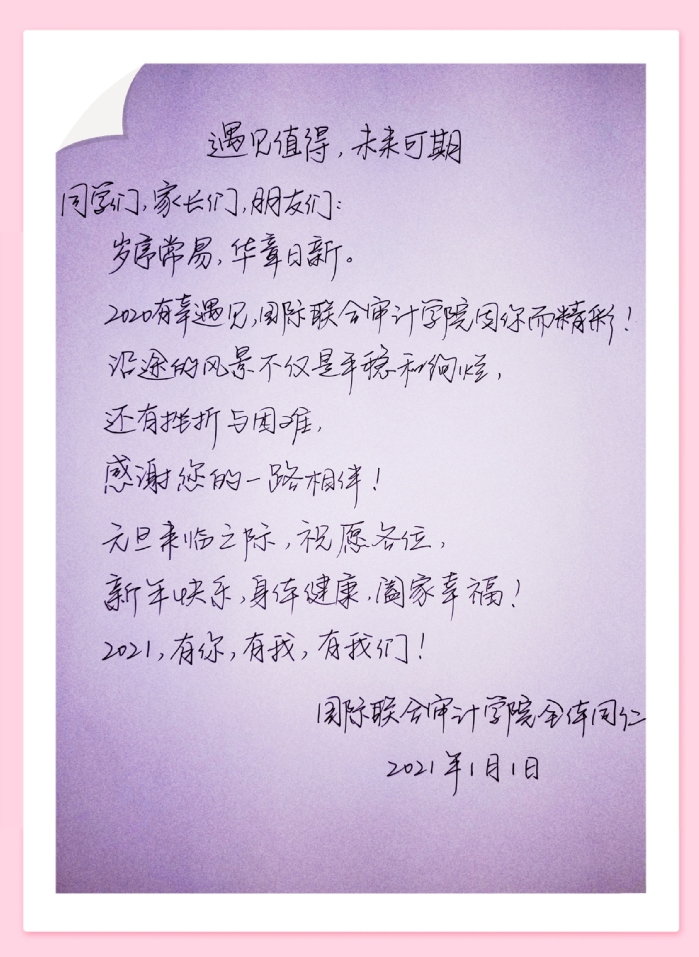 遇见值得，未来可期
同学们，家长们，朋友们：
岁序常易，华章日新。
2020有幸遇见，国际联合审计学院因你而精彩！
沿途的风景不仅是平稳和绚烂，
还有挫折与困难，
感谢您的一路相伴！
元旦来临之际，祝愿各位，
新年快乐，身体健康，阖家幸福！
2021，有你，有我，有我们！
国际联合审计学院全体同仁
2021年1月1日